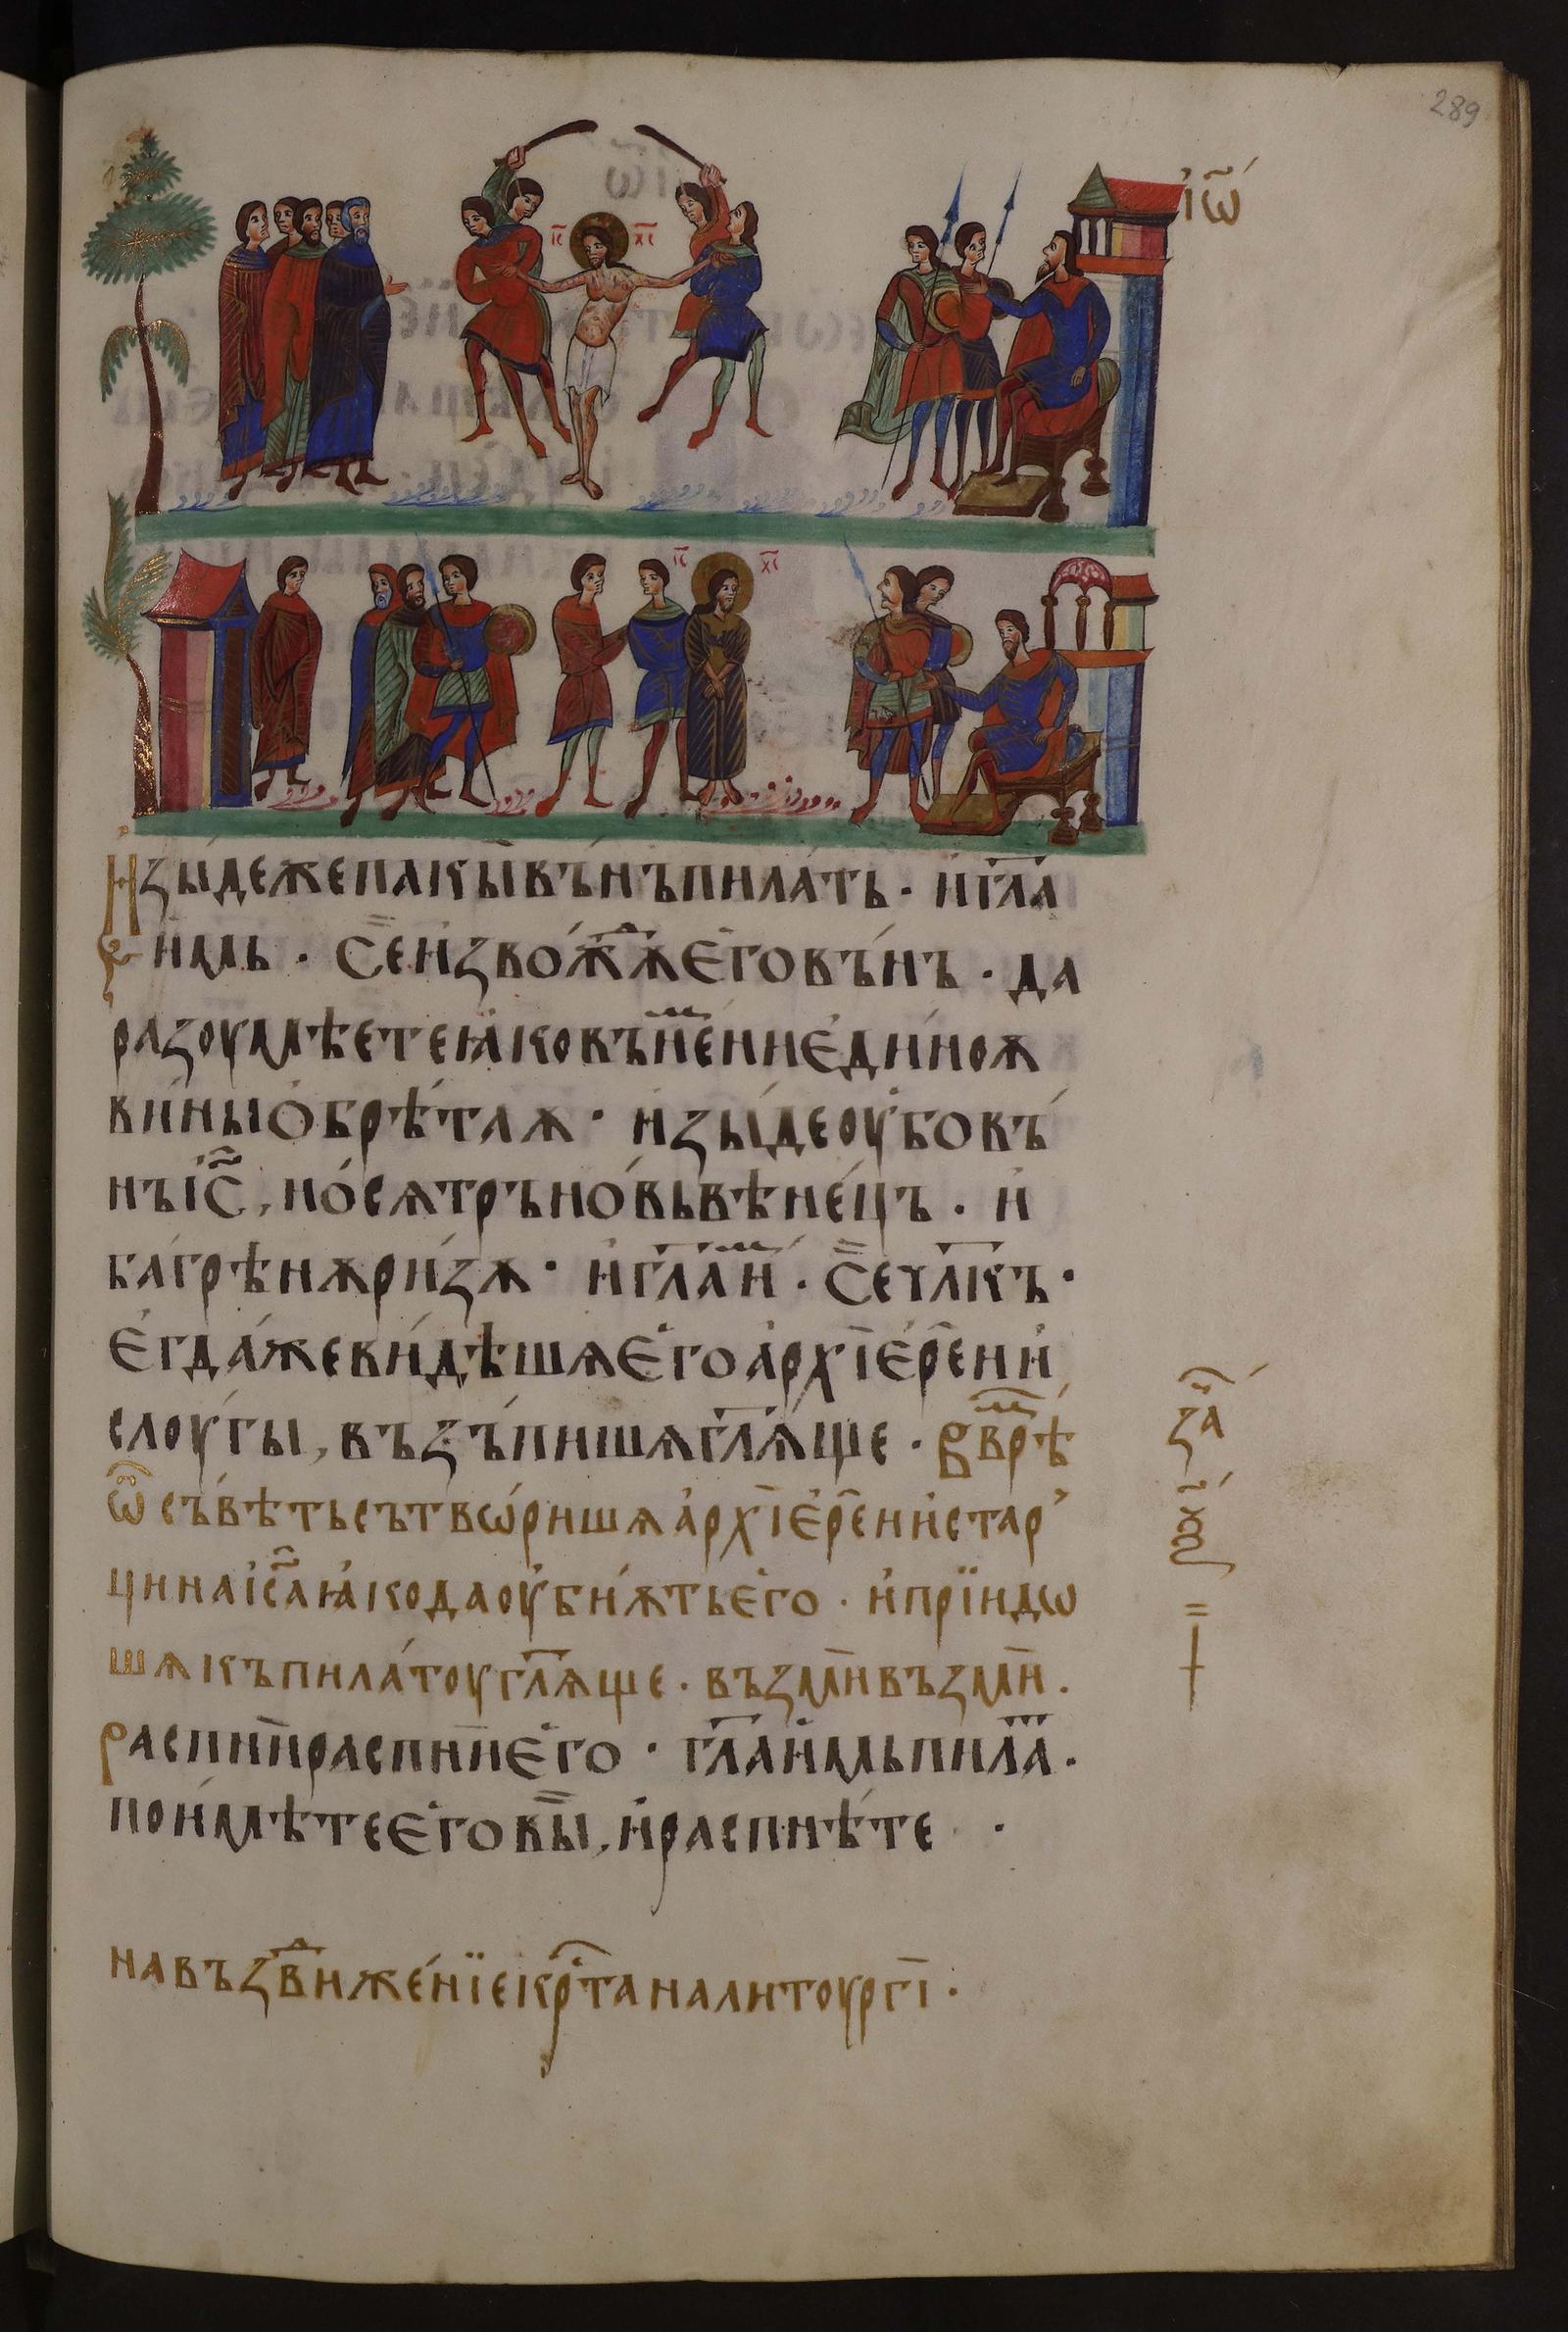 289
і҆ѡ҃
І҃С Х҃С
І҃С Х҃С
И҆зы́дежепакы̀въ́нъпила́ть· и҆гл҃а
и҆мь· Се҆и҆звождѫ̀е҆говъ́нъ· да
разоумѣетеꙗ҆ковъне́мние҆ди́ноѫ
вины̀о҆брѣ́таѫ· и҆зы́деоу҆бовъ́
нъі҆с҃, но́сѧтръно́вьвѣне́цъ· и҆
багрѣнѫри́зѫ· и҆гл҃аи҆м· Сечл҃къ·
Е҆гда́жеви́дѣшѧе҆гоа҆рхїе҆рееи҆
слоугы̀, възъ́пишѧгл҃ѧ́ще· Ввр҃ѣм
ѿсъвѣ́тьсътвѡ́ришѧа҆рхїе҆рееи҆стар
цинаі҆с҃аꙗ҆кодаоу҆би́ѫтье҆го· и҆прїидѡ
шѧкъпила́тоугл҃ѧще· възмѝвъзмѝ·
распнѝраспнѝе҆го· гл҃аи҆мьпила·
пои҆мѣ́тее҆говы̀, и҆распнѣ́те ·
за҃
ѯ҃
навъздви́же́нїекрⷭ҇таналитоургї·